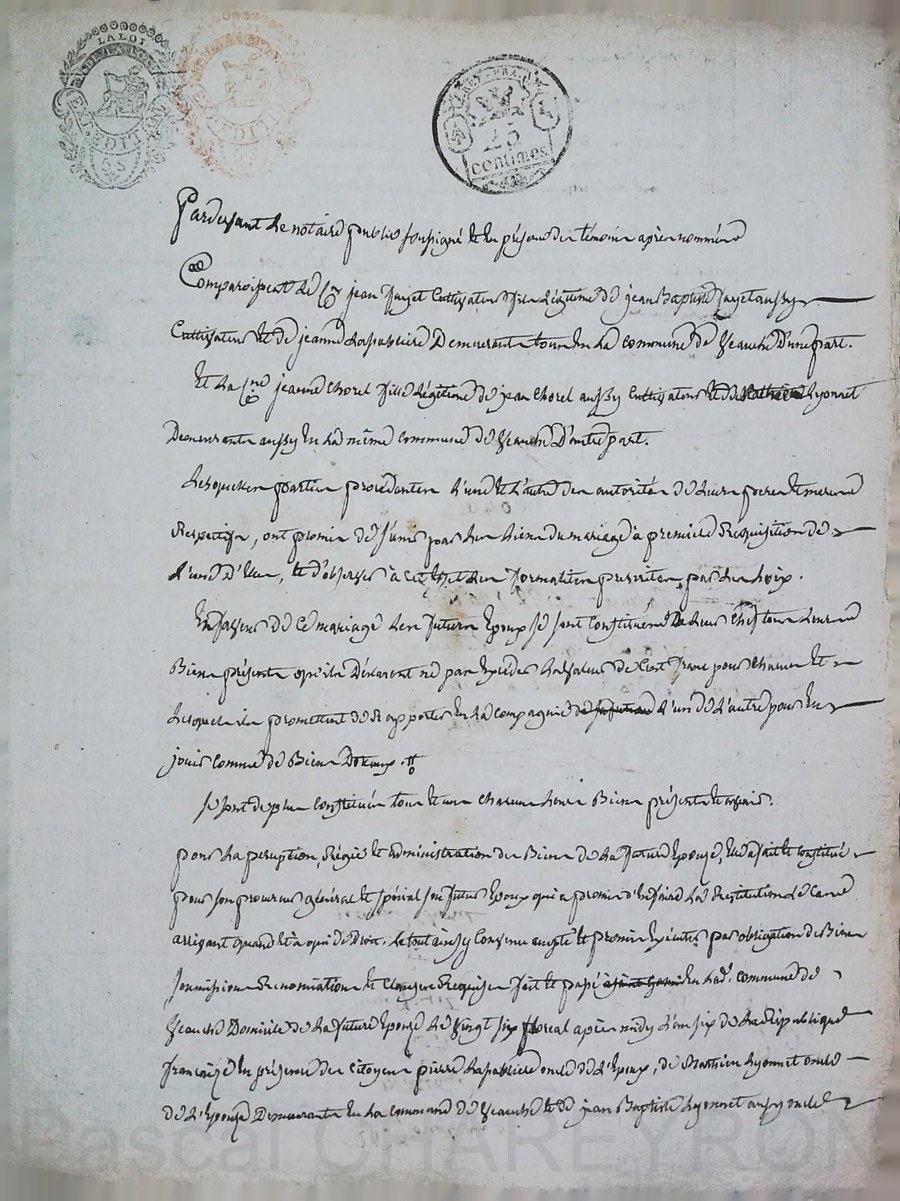 LA LOI
REP. FRA.
25
centimes
Pardevant Le notaire public soussigné Et En présence des témoins après nommés
Comparoissent Le Cen jean fayet Cultivateur fils Légitime de jean Baptiste fayet aussy
Cultivateur Et de jeanne Lapublière Demeurants tous En La commune de Veauche D'une part.
Et La Cne jeanne Chorel fille Légitime de jean Chorel aussy Cultivateur Et de Lyonnet
Demeurants aussy En La même commune de Veauche D'autre part.
Lesquelles parties procédantes L'une Et L'autre des autorités de Leurs peres Et meres
Respectifs, ont promis de s'unir par Les Liens du mariage à première Réquisition de
L'une D'Elles, Et d'observer à cet Effet Les formalités prescrites par Les Loix.
En faveur de Ce mariage Les futurs Epoux se sont Constitués De Leurs Chef tous Leurs
Biens présents qu'ils Déclarent ne pas Excéder La valeur de Cent francs pour chacun Et
Lesquels ils promettent de Rapporter En La compagnie de L'un de L'autre pour En
jouir comme de Biens Dotaux.
Se sont de plus Constitués tous Et uns chacuns Leurs Biens présents Et avenir.
pour La perception, Régie Et administration des Biens de La future Epouse, Elle a fait Et Constitué
pour son procureur général Et spécial son futur Epoux qui a promis d'En faire La Restitution Le cas
arrivant quand Et à qui De Droit. Le tout ainsy Convenu accepté Et promis Exécuter par obligation de Biens
Soumissions Renonciations Et Clauses Requises fait Et passé En Lad. commune de
Veauche Domicile de La future Epouse Le Vingt six floreal après midy L'an six de La République
françoise En présence des Citoyens pierre Lapublière oncle de L'Epoux, de Mathieu Lyonnet oncle
de L'Epouse Demeurants En La commune de Veauche Et de jean Baptiste Lyonnet aussy oncle
Pascal CHAREYRON